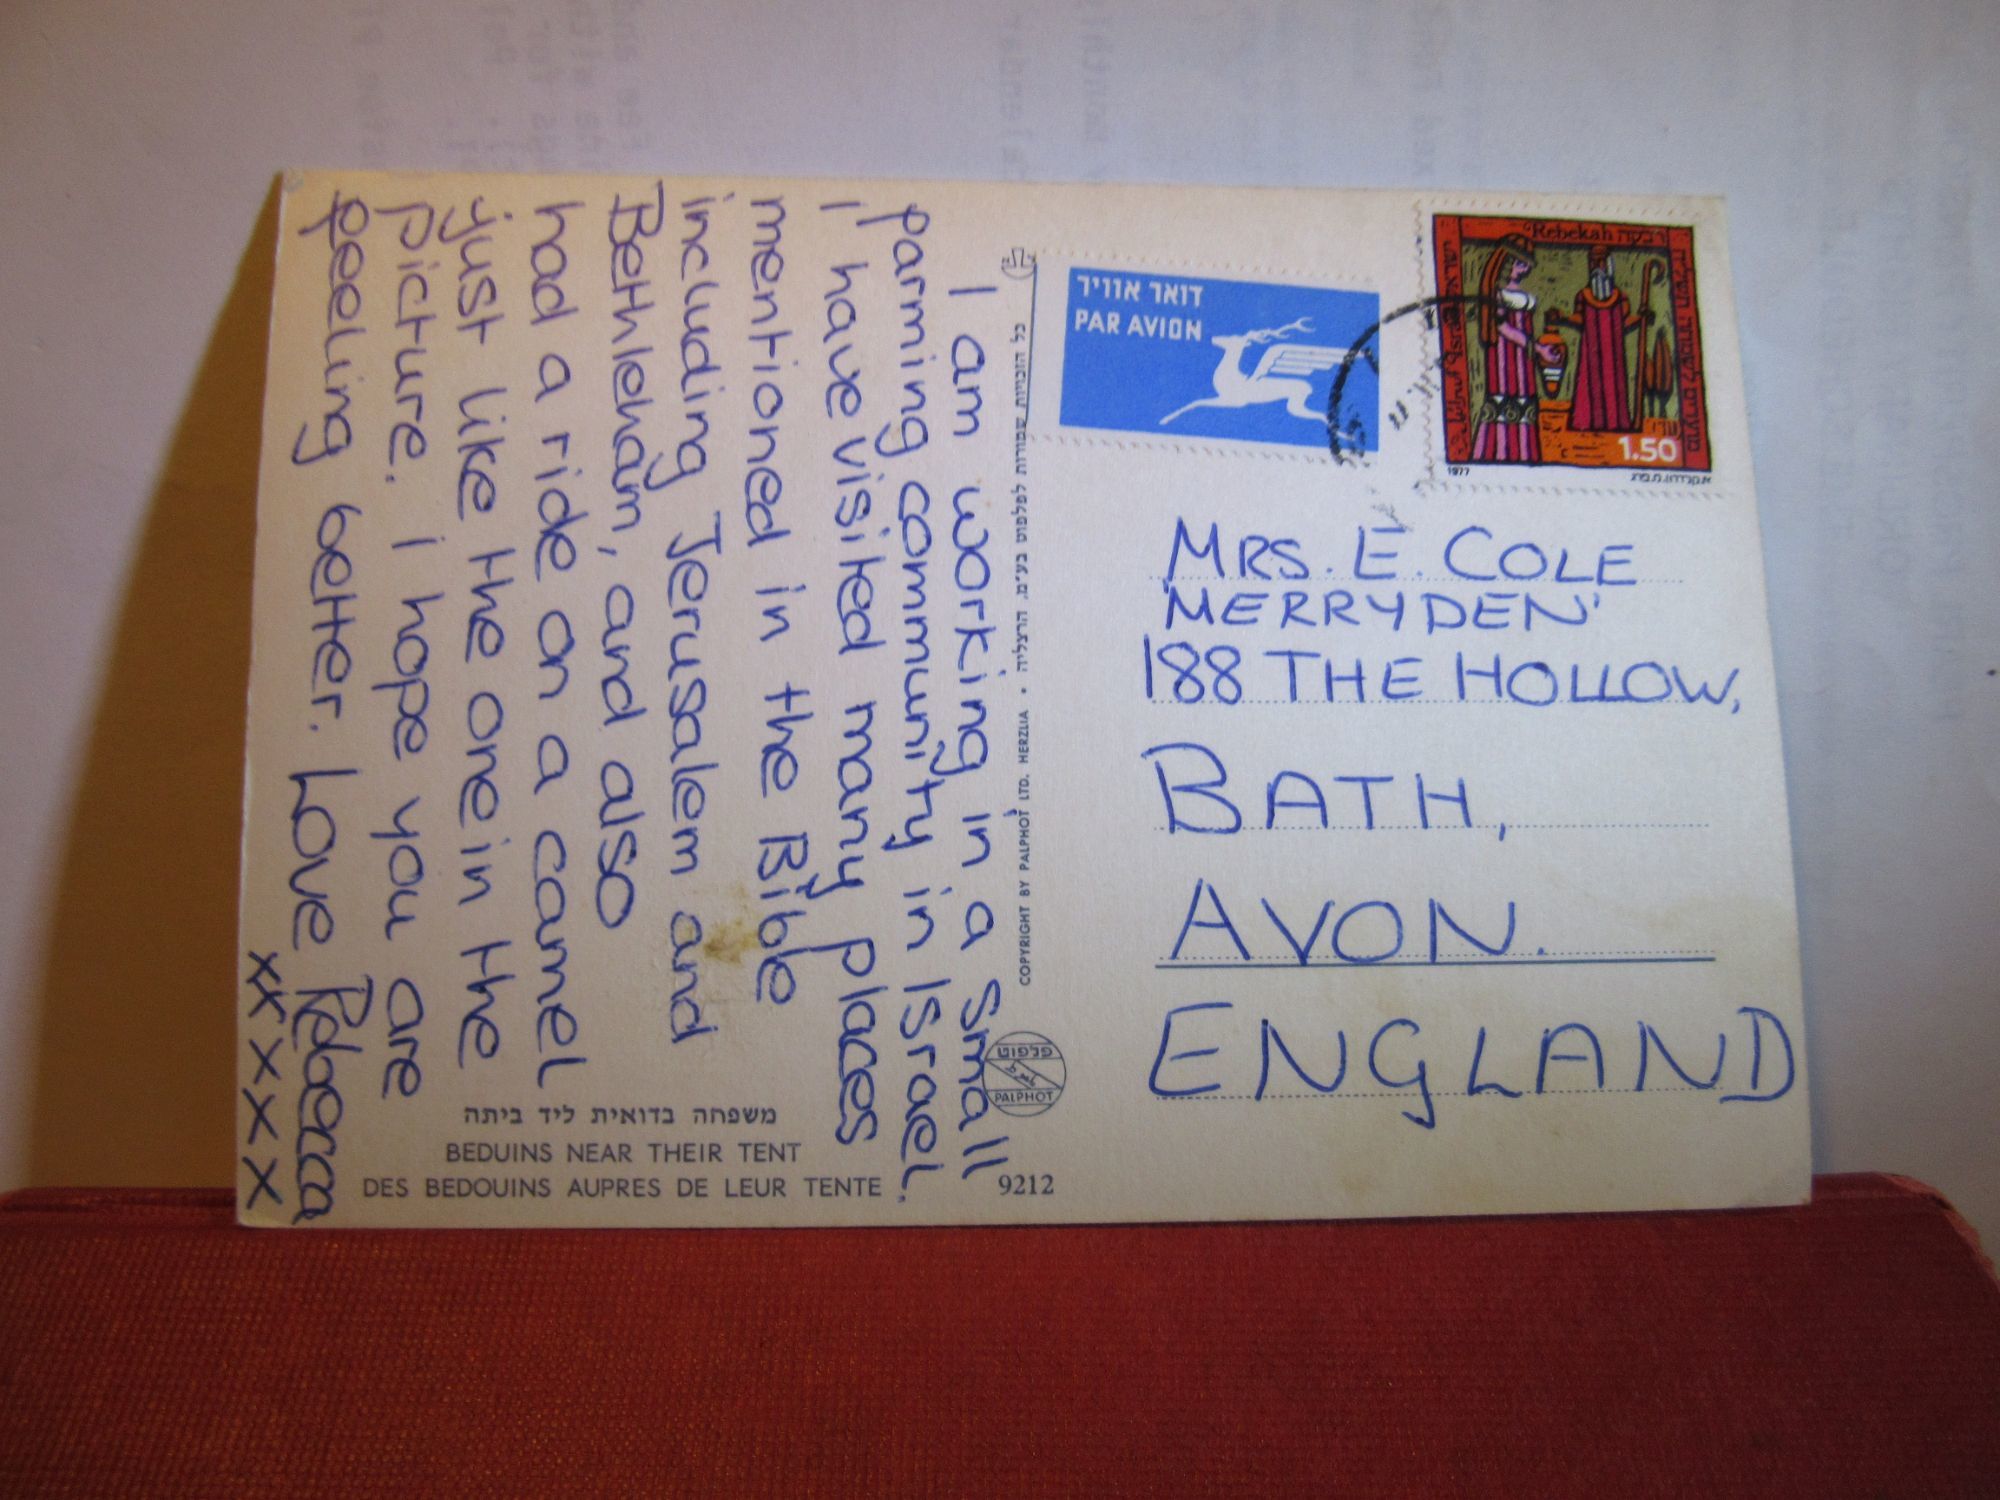 I am working in a small
farming community in Israel.
I have visited many places
mentioned in the Bible
including Jerusalem and
Bethleham, and also
had a ride on a camel
just like the one in the
picture. I hope you are
feeling better. Love Rebecca
xx x x x x
משפחה בדואית ליד ביתה
BEDUINS NEAR THEIR TENT
DES BEDOUINS AUPRES DE LEUR TENTE
9212
COPYRIGHT BY PALPHOT LTD. HERZLIA • כל הזכויות שמורות לפלפוט בע"מ. הרצליה
פלפוט
PALPHOT
דואר אוויר
PAR AVION
Rebekah רבקה
ישראל Israel
1.50
1977
MRS. E. COLE
'MERRYDEN'
188 THE HOLLOW,
BATH,
AVON.
ENGLAND